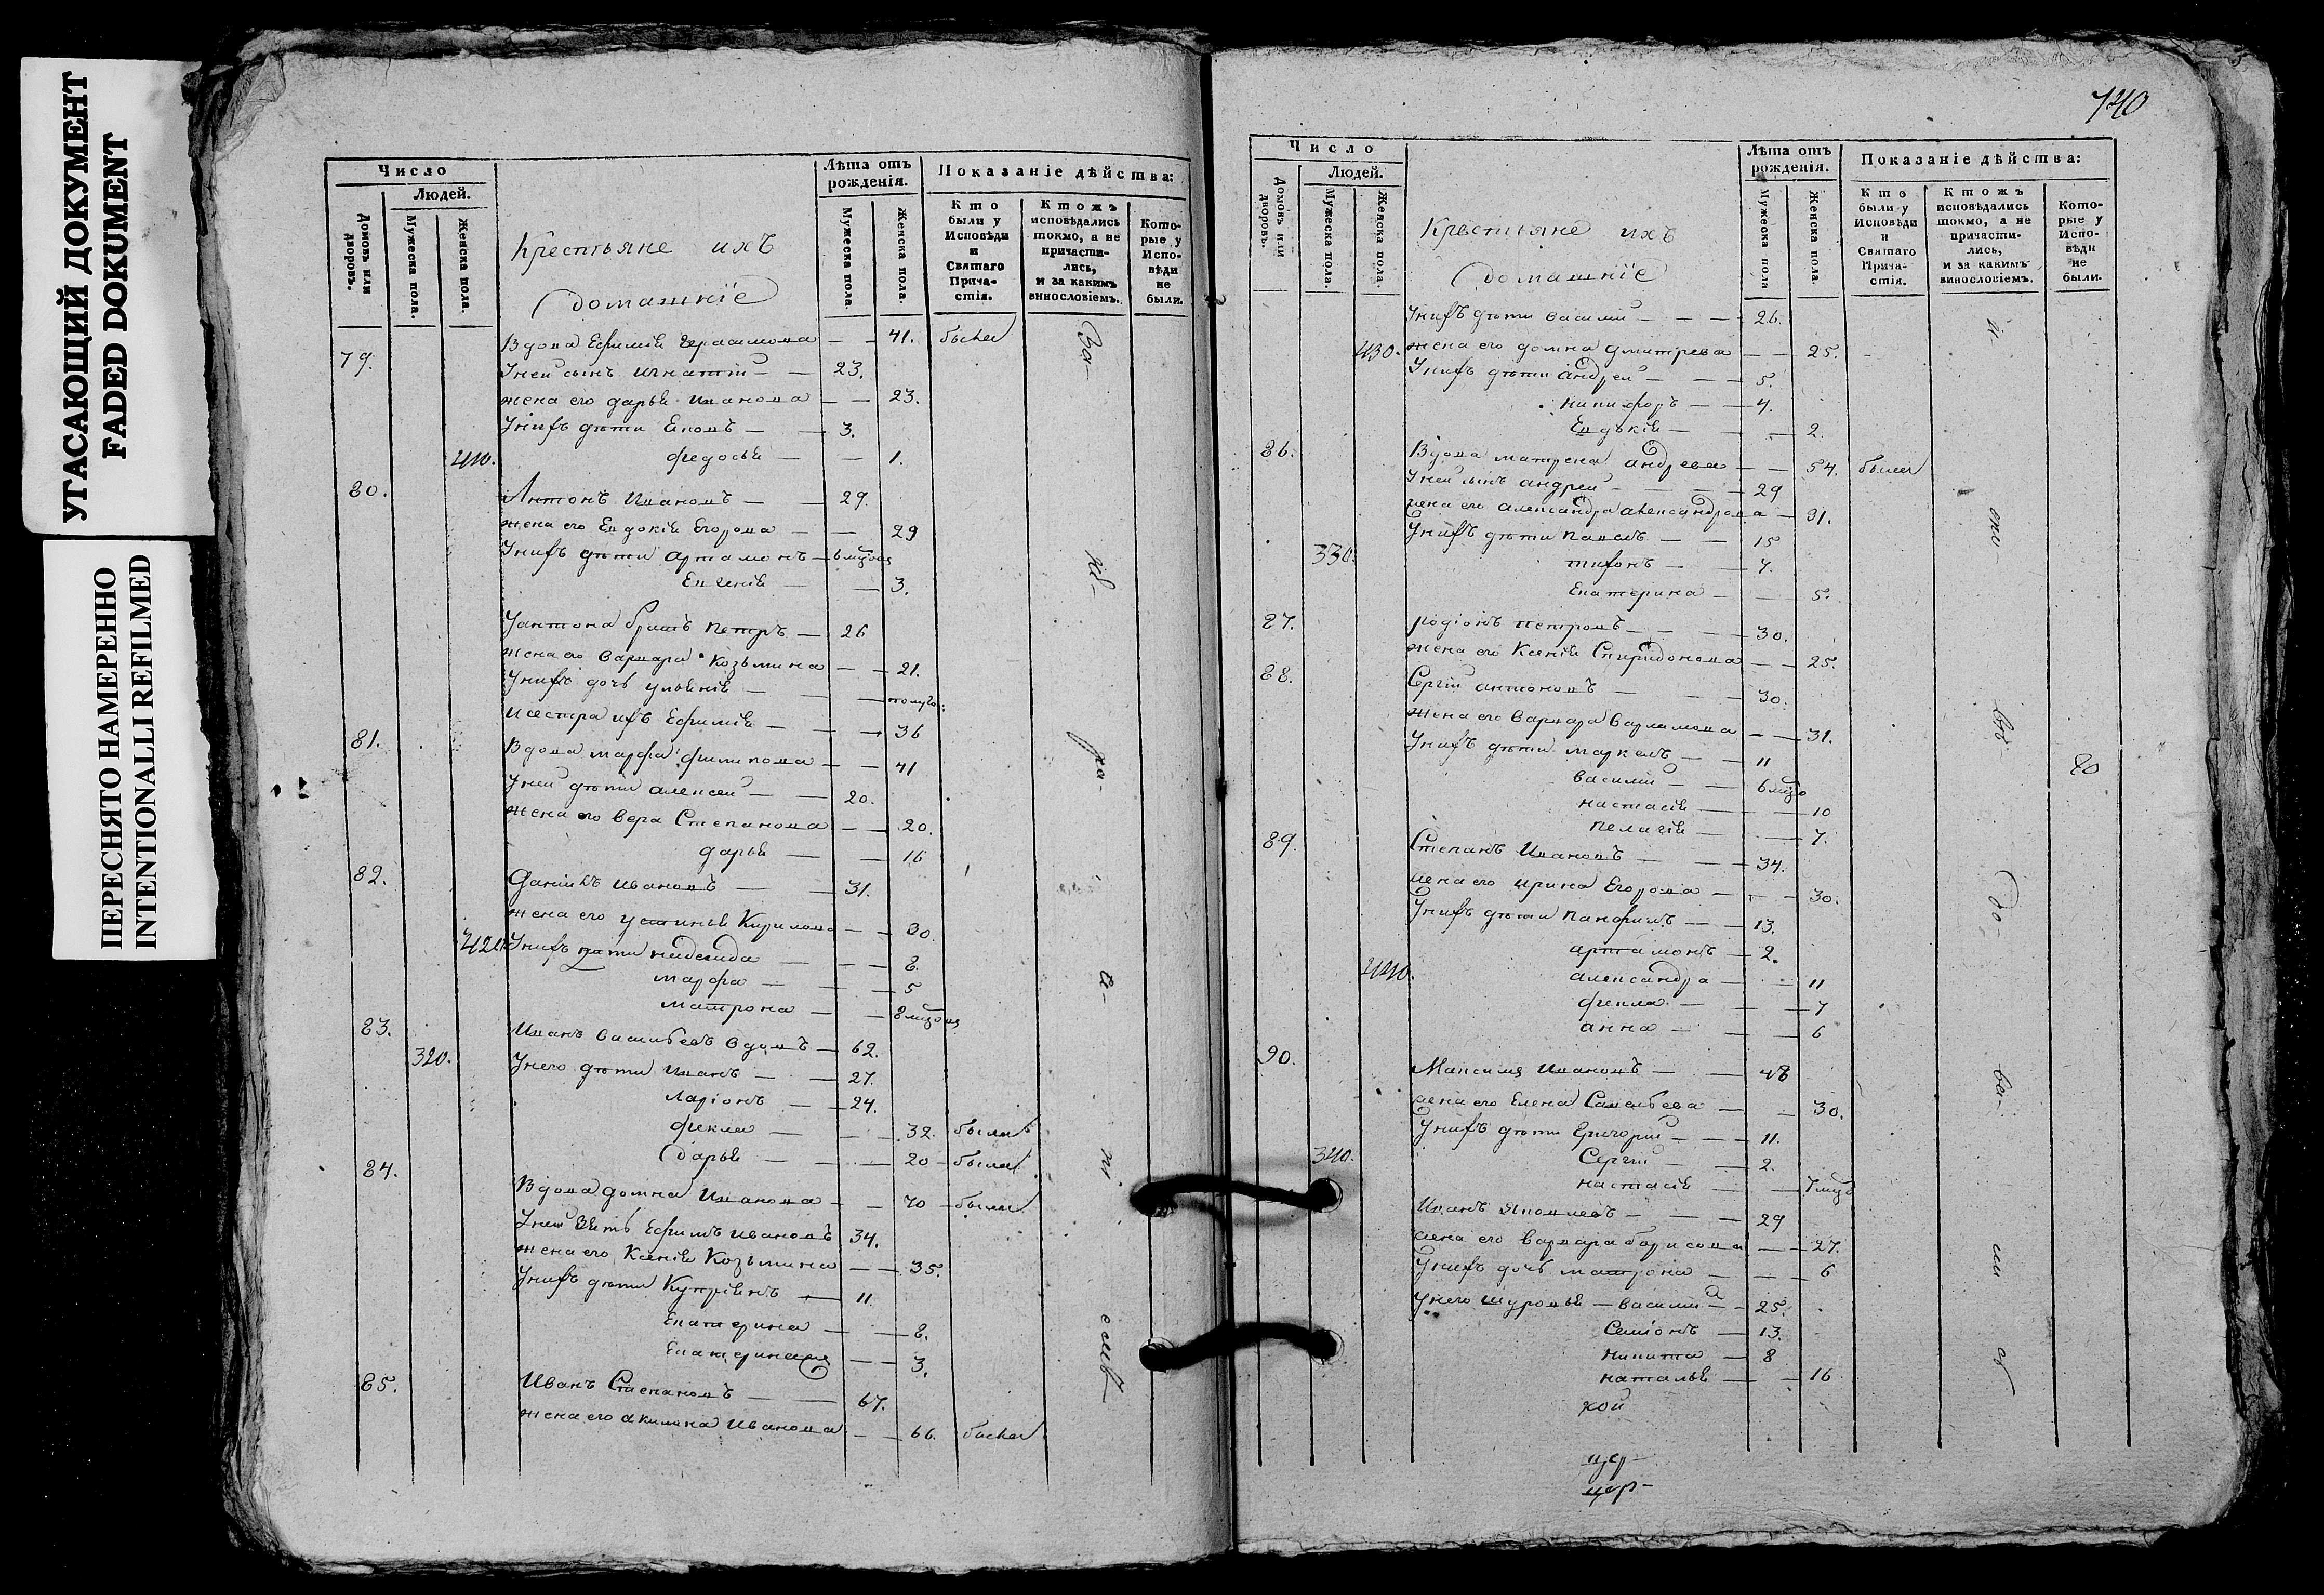 УГАСАЮЩИЙ ДОКУМЕНТ
FADED DOKUMENT
ПЕРЕСНЯТО НАМЕРЕННО
INTENTIONALLI REFILMED
Число
Людей.
Домовъ или дворовъ.
Мужеска пола.
Женска пола.
Крестьяне ихъ
домашніе
Лѣта отъ рожденія.
Мужеска пола.
Женска пола.
Показаніе дѣйства:
Кто были у Исповѣди и Святаго Прича-стія.
Ктожъ исповѣдались токмо, а не причасти-лись, и за какимъ винословіемъ.
Кото-рые у Испо-вѣди не были.
79. Вдова Ефимія Герасимова — — 41. были
У ней сынъ Игнатій — — 23.
жена его дарья Иванова — — 23.
У нихъ дѣти — 3.
410. федосья — — 1.
80. Антонъ Ивановъ — — 29.
жена его Евдокія Егорова — — 29
У нихъ дѣти Артамонъ —
Евгенія — — 3.
У Антона братъ Петръ — 26
жена его Варвара Козьмина — — 21.
У нихъ дочь ульянія — —
И сестра ихъ Ефимія — — 36
81. Вдова марфа филипова — — 41
У ней дѣти алексей — — 20.
жена его вера Степанова — — 20.
дарья — — 16
82. Даніилъ Ивановъ — — 31.
жена его устинья Кирилова — — 30.
У нихъ дѣти надежда — — 8.
марфа — — 5
матрона — —
83. Иванъ васильевъ вдовъ — 62.
320. У него дѣти Иванъ — — 27.
Ларіонъ — — 24.
фекла — — 32. были
дарья — — 20 — были
84. Вдова домна Иванова — — 70 — были
У ней зять Ефимъ Ивановъ 34.
жена его Ксенія Козьмина — — 35.
У нихъ дѣти Купріянъ — 11.
Екатерина — — 8.
— — 3.
85. Иванъ Степановъ — — 67.
жена его акилина Иванова — — 66. были
740
Число
Людей.
Домовъ или дворовъ.
Мужеска пола.
Женска пола.
Крестьяне ихъ
домашніе
Лѣта отъ рожденія.
Мужеска пола
Женска пола.
Показаніе дѣйства:
Кто были у Исповѣди и Святаго Прича-стія.
Ктожъ исповѣдались токмо, а не причасти-лись, и за какимъ винословіемъ.
Кото-рые у Испо-вѣди не были.
У нихъ дѣти василій — — — 26.
430. жена его домна дмитрева — — 25.
У нихъ дѣти андрей — — — 5.
никифоръ — — 4.
Евдокія — — 2.
86. Вдова матрена андрева — — 54. были
У ней сынъ андрей — — — 29
жена его александра александрова — 31.
У нихъ дѣти павелъ — — 15
330. тихонъ — — 7.
Екатерина — — 5.
87. Родіонъ петровъ — — — 30.
жена его Ксенія Спиридонова — — 25.
88. Сергій антоновъ — — 30.
жена его варвара варламова — — 31.
У нихъ дѣти маркелъ — — 11
василій — —
настасія — — 10
пелагія — — 7.
89. Степанъ Ивановъ — — — 34.
жена его ирина Егорова — — 30.
У нихъ дѣти панфилъ — — 13.
артамонъ — 2.
440. александра — — 11
фекла — — 7
анна — — 6
90. Максимъ Ивановъ — — 48
жена его Елена Савельева — — 30.
У нихъ дѣти Григорій — — 11.
340. Сергій — — 2.
настасія — —
Иванъ Яковлевъ — — — 29
жена его варвара борисова — — 27.
У нихъ дочь матрона — — — 6
У него шуровья — василій — 25.
Семіонъ — 13.
никита — 8
наталья — — 16
80
кой
цер-
цер-